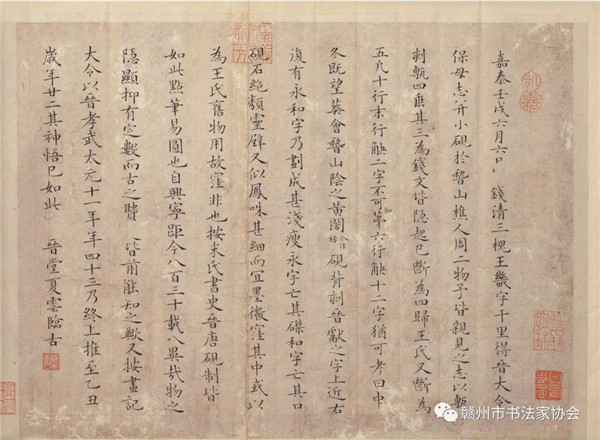 嘉泰壬戌六月六日 錢清三槐王畿字千里得晉大令
保母志并小硯於嵇山樵人周二物予皆親見之志以甎
刻甎四垂其三為錢文皆隱起已斷為四歸王氏又斷為
五凡十行末行缺二字不可知第六行缺十二字猶可考曰中
冬既望葬會嵇山陰之黃閍硯背刻晉獻之字上近右
復有永和字乃劃成甚淺瘦永字亡其磔和字亡其口
硯石絶類靈壁又似鳳咮甚細而宜墨微窪其中或以
為王氏舊物用故窪非也按米氏書史晉唐硯制皆
如此點筆易圓也自興寧距今八百三十載八異哉物之
隱顯抑有定數而古之賢皆前能知之歟又按畫記
大令以晉孝武太元十一年年四十三乃終上推至乙丑
歲年廿二其神悟已如此 晉堂夏雲臨古
赣州市书法家协会